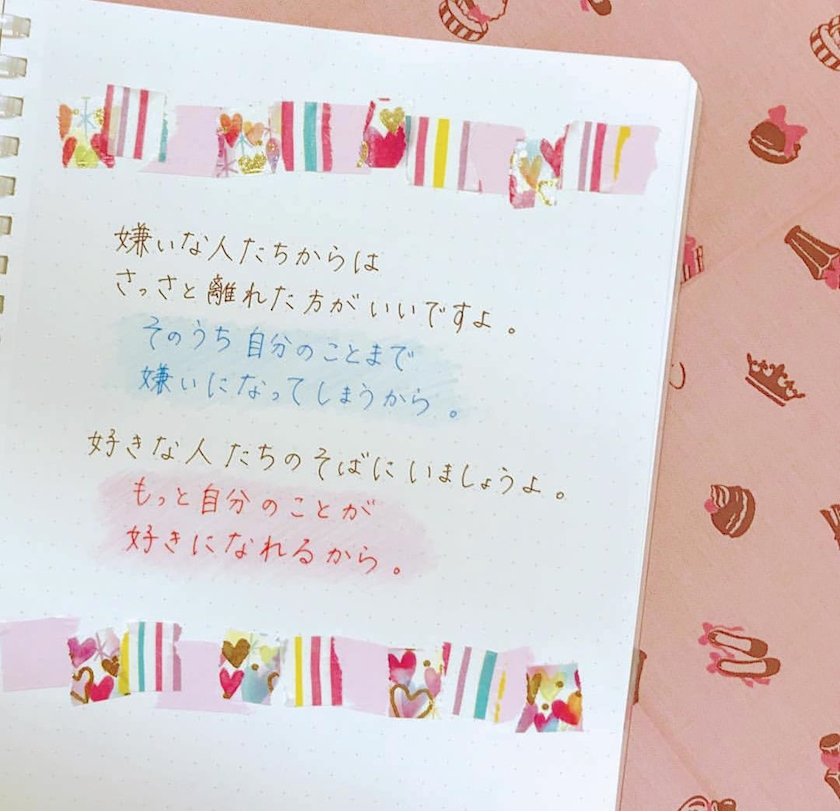 嫌いな人たちからは
さっさと離れた方がいいですよ。
そのうち自分のことまで
嫌いになってしまうから。
好きな人たちのそばにいましょうよ。
もっと自分のことが
好きになれるから。